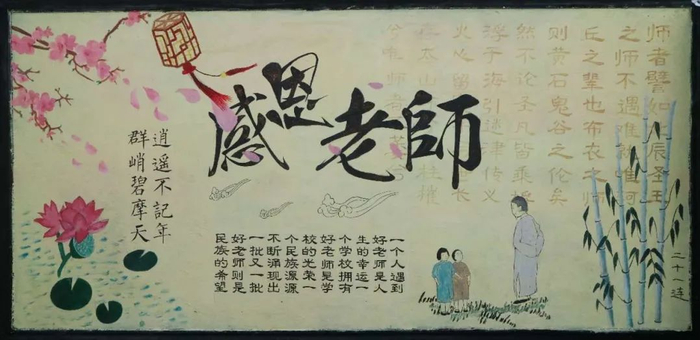 感恩老師
师者譬如 辰圣王
之师不遇
丘之辈也布衣之师
则黄石鬼谷之伦矣
然不论圣凡皆乘
浮于海引 津传义
火心留 长
太山 柱
逍遥不記年
群峭碧摩天
一个人遇到
好老师是人
生的幸运一
个学校拥有
好老师是学
校的光荣一
个民族源源
不断涌现出
一批又一批
好老师则是
民族的希望
二十一连